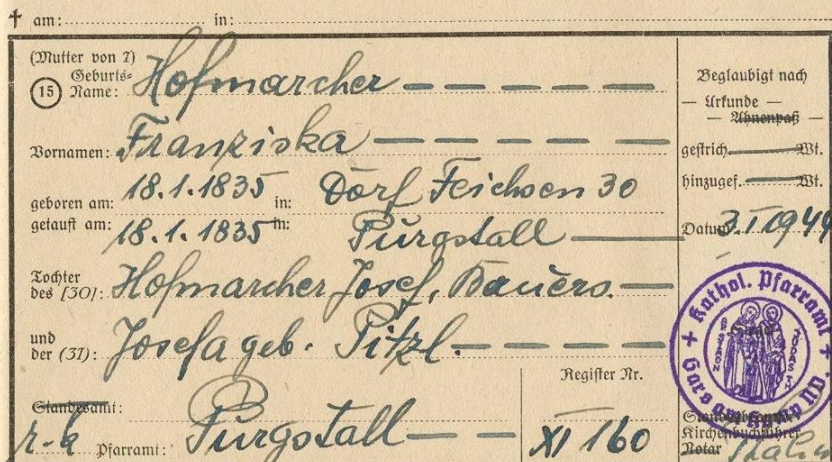 † am: in:
(Mutter von 7)
Geburts-
15 Name: Hofmarcher
Vornamen: Franziska
geboren am: 18.1.1835 in: Dorf Feichsen 30
getauft am: 18.1.1835 in: Purgstall
Tochter des [30]: Hofmarcher Josef, Bauers.
und der (31): Josefa geb. Pitzl.
Standesamt:
r.-k. Pfarramt: Purgstall
Register Nr.
XI 160
Beglaubigt nach
— Urkunde —
— Ahnenpaß —
gestrich. Wt.
hinzugef. Wt.
Datum 3.I.1944
Kathol. Pfarramt
Gars
Kirchenbuchführer
Notar